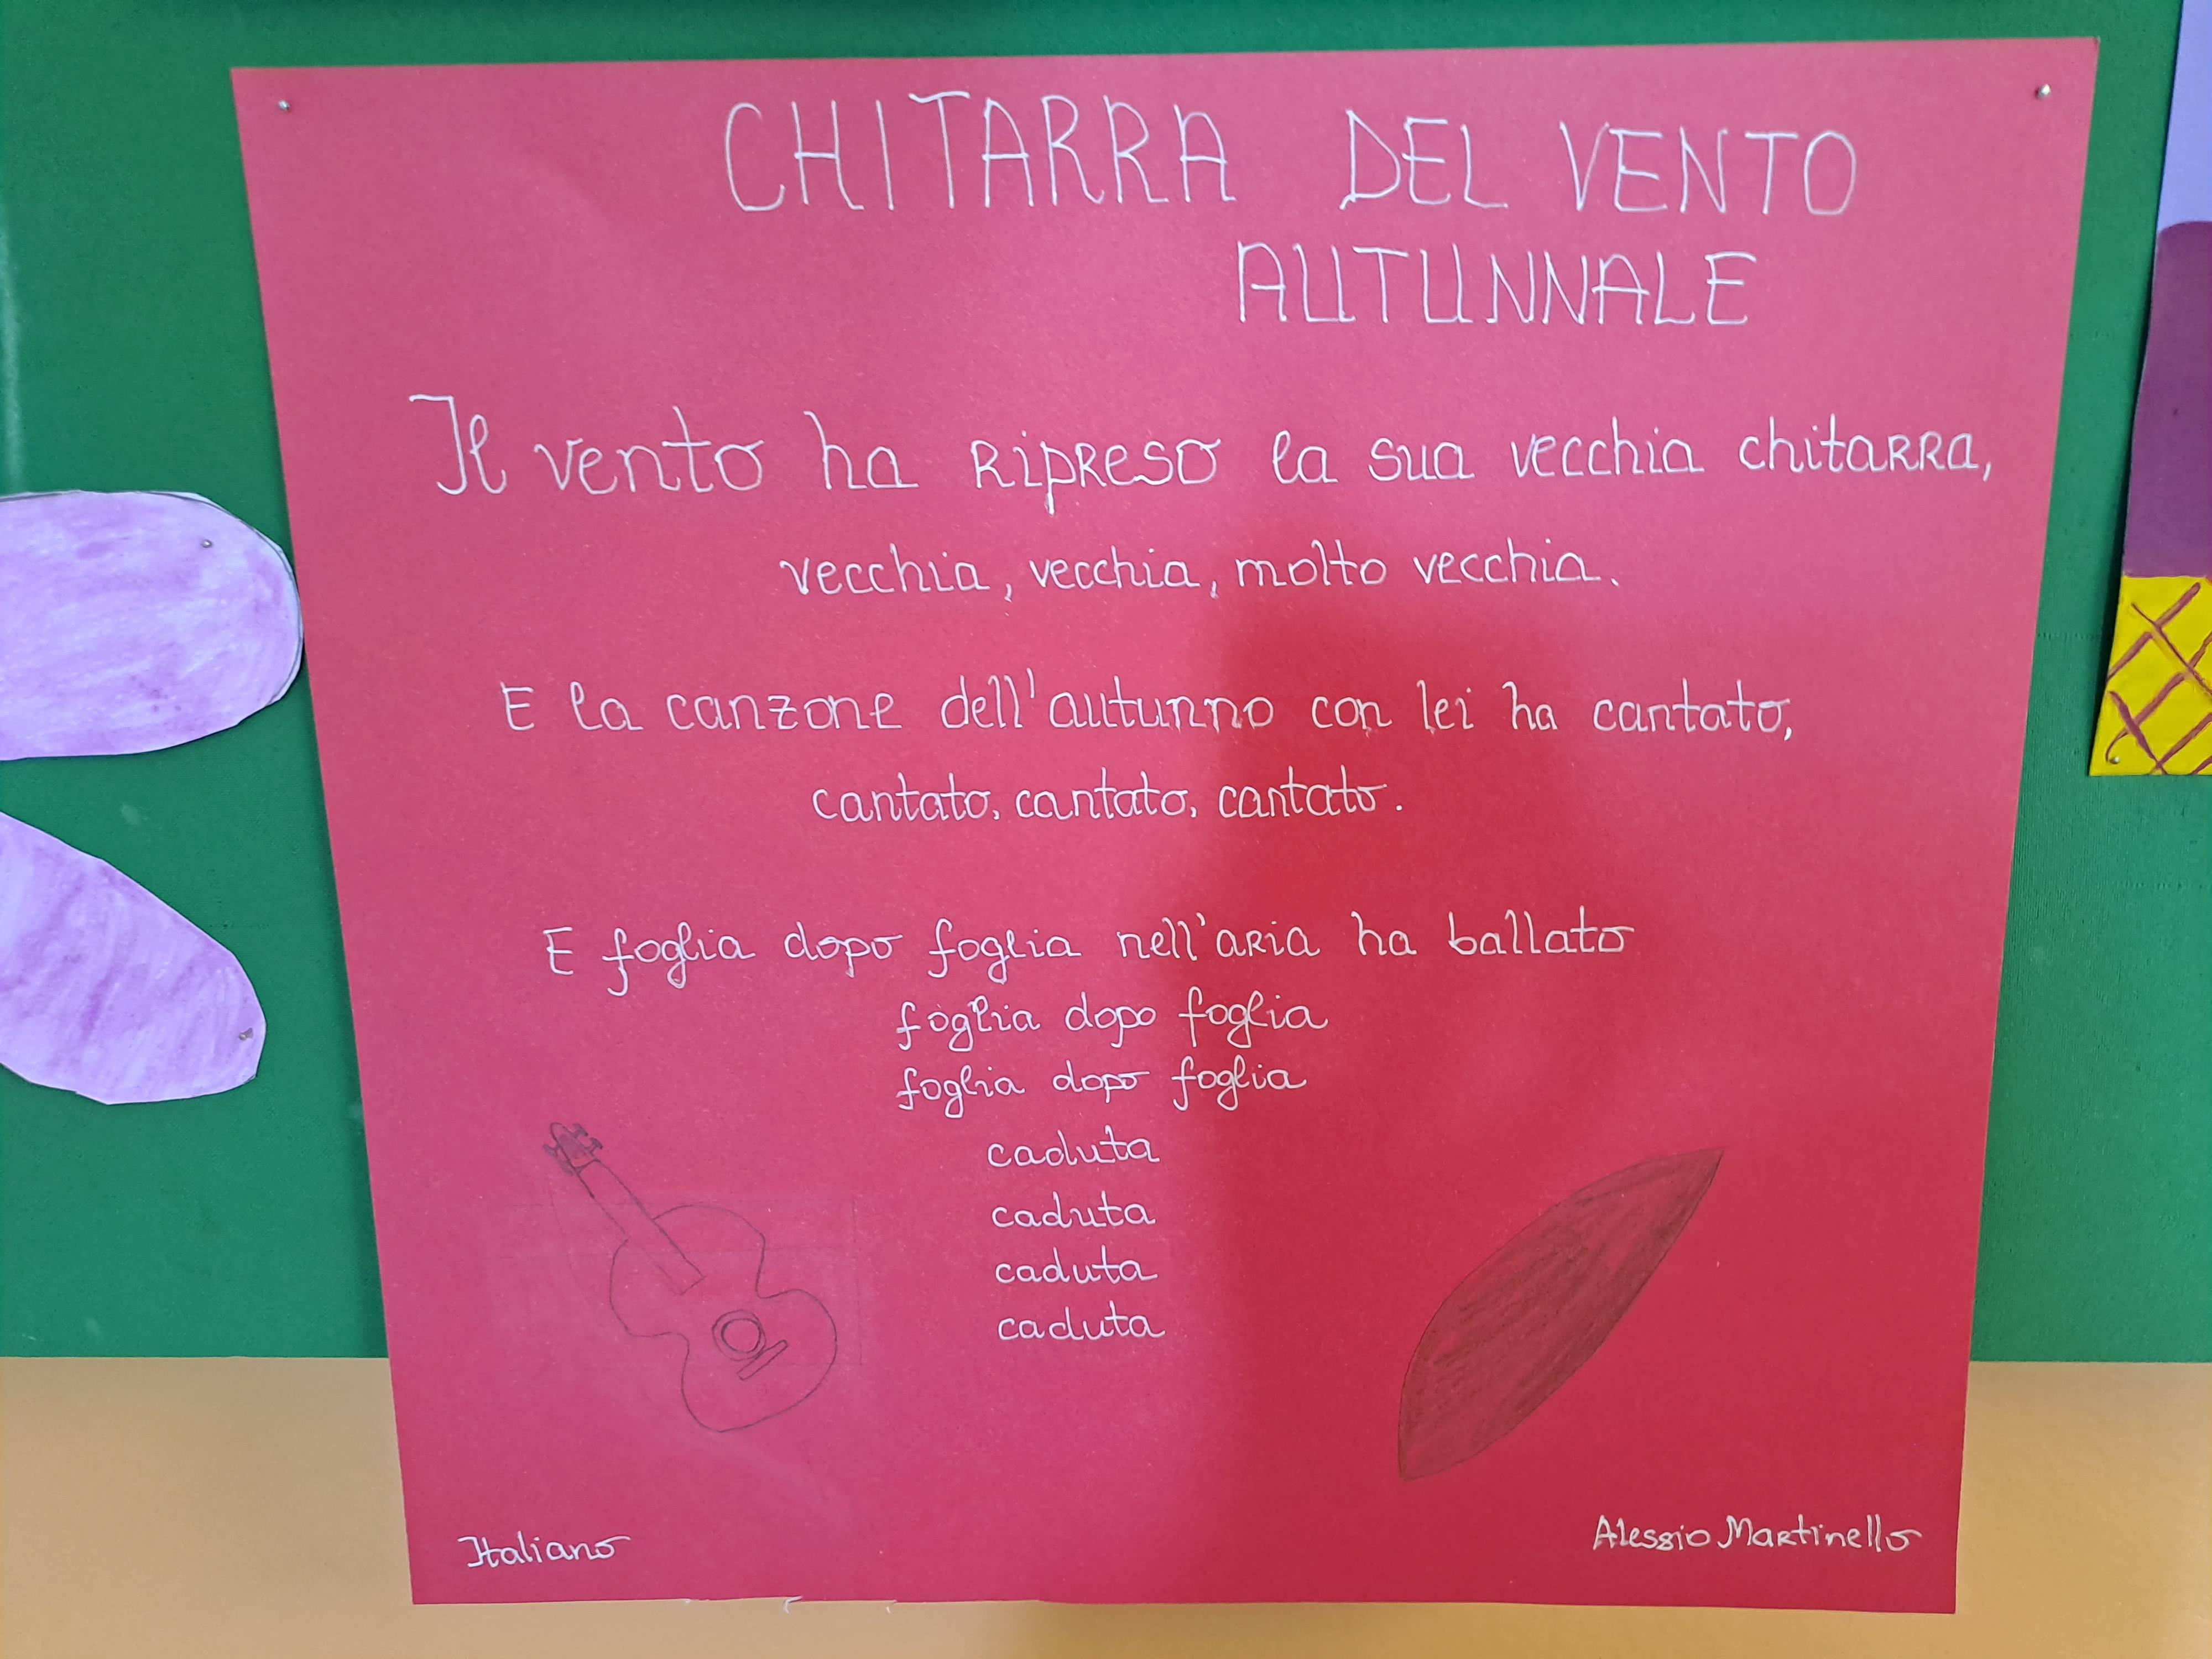 CHITARRA DEL VENTO
AUTUNNALE
Il vento ha ripreso la sua vecchia chitarra,
vecchia, vecchia, molto vecchia.
E la canzone dell'autunno con lei ha cantato,
cantato, cantato, cantato.
E foglia dopo foglia nell'aria ha ballato
foglia dopo foglia
foglia dopo foglia
caduta
caduta
caduta
caduta
Italiano
Alessio Martinello